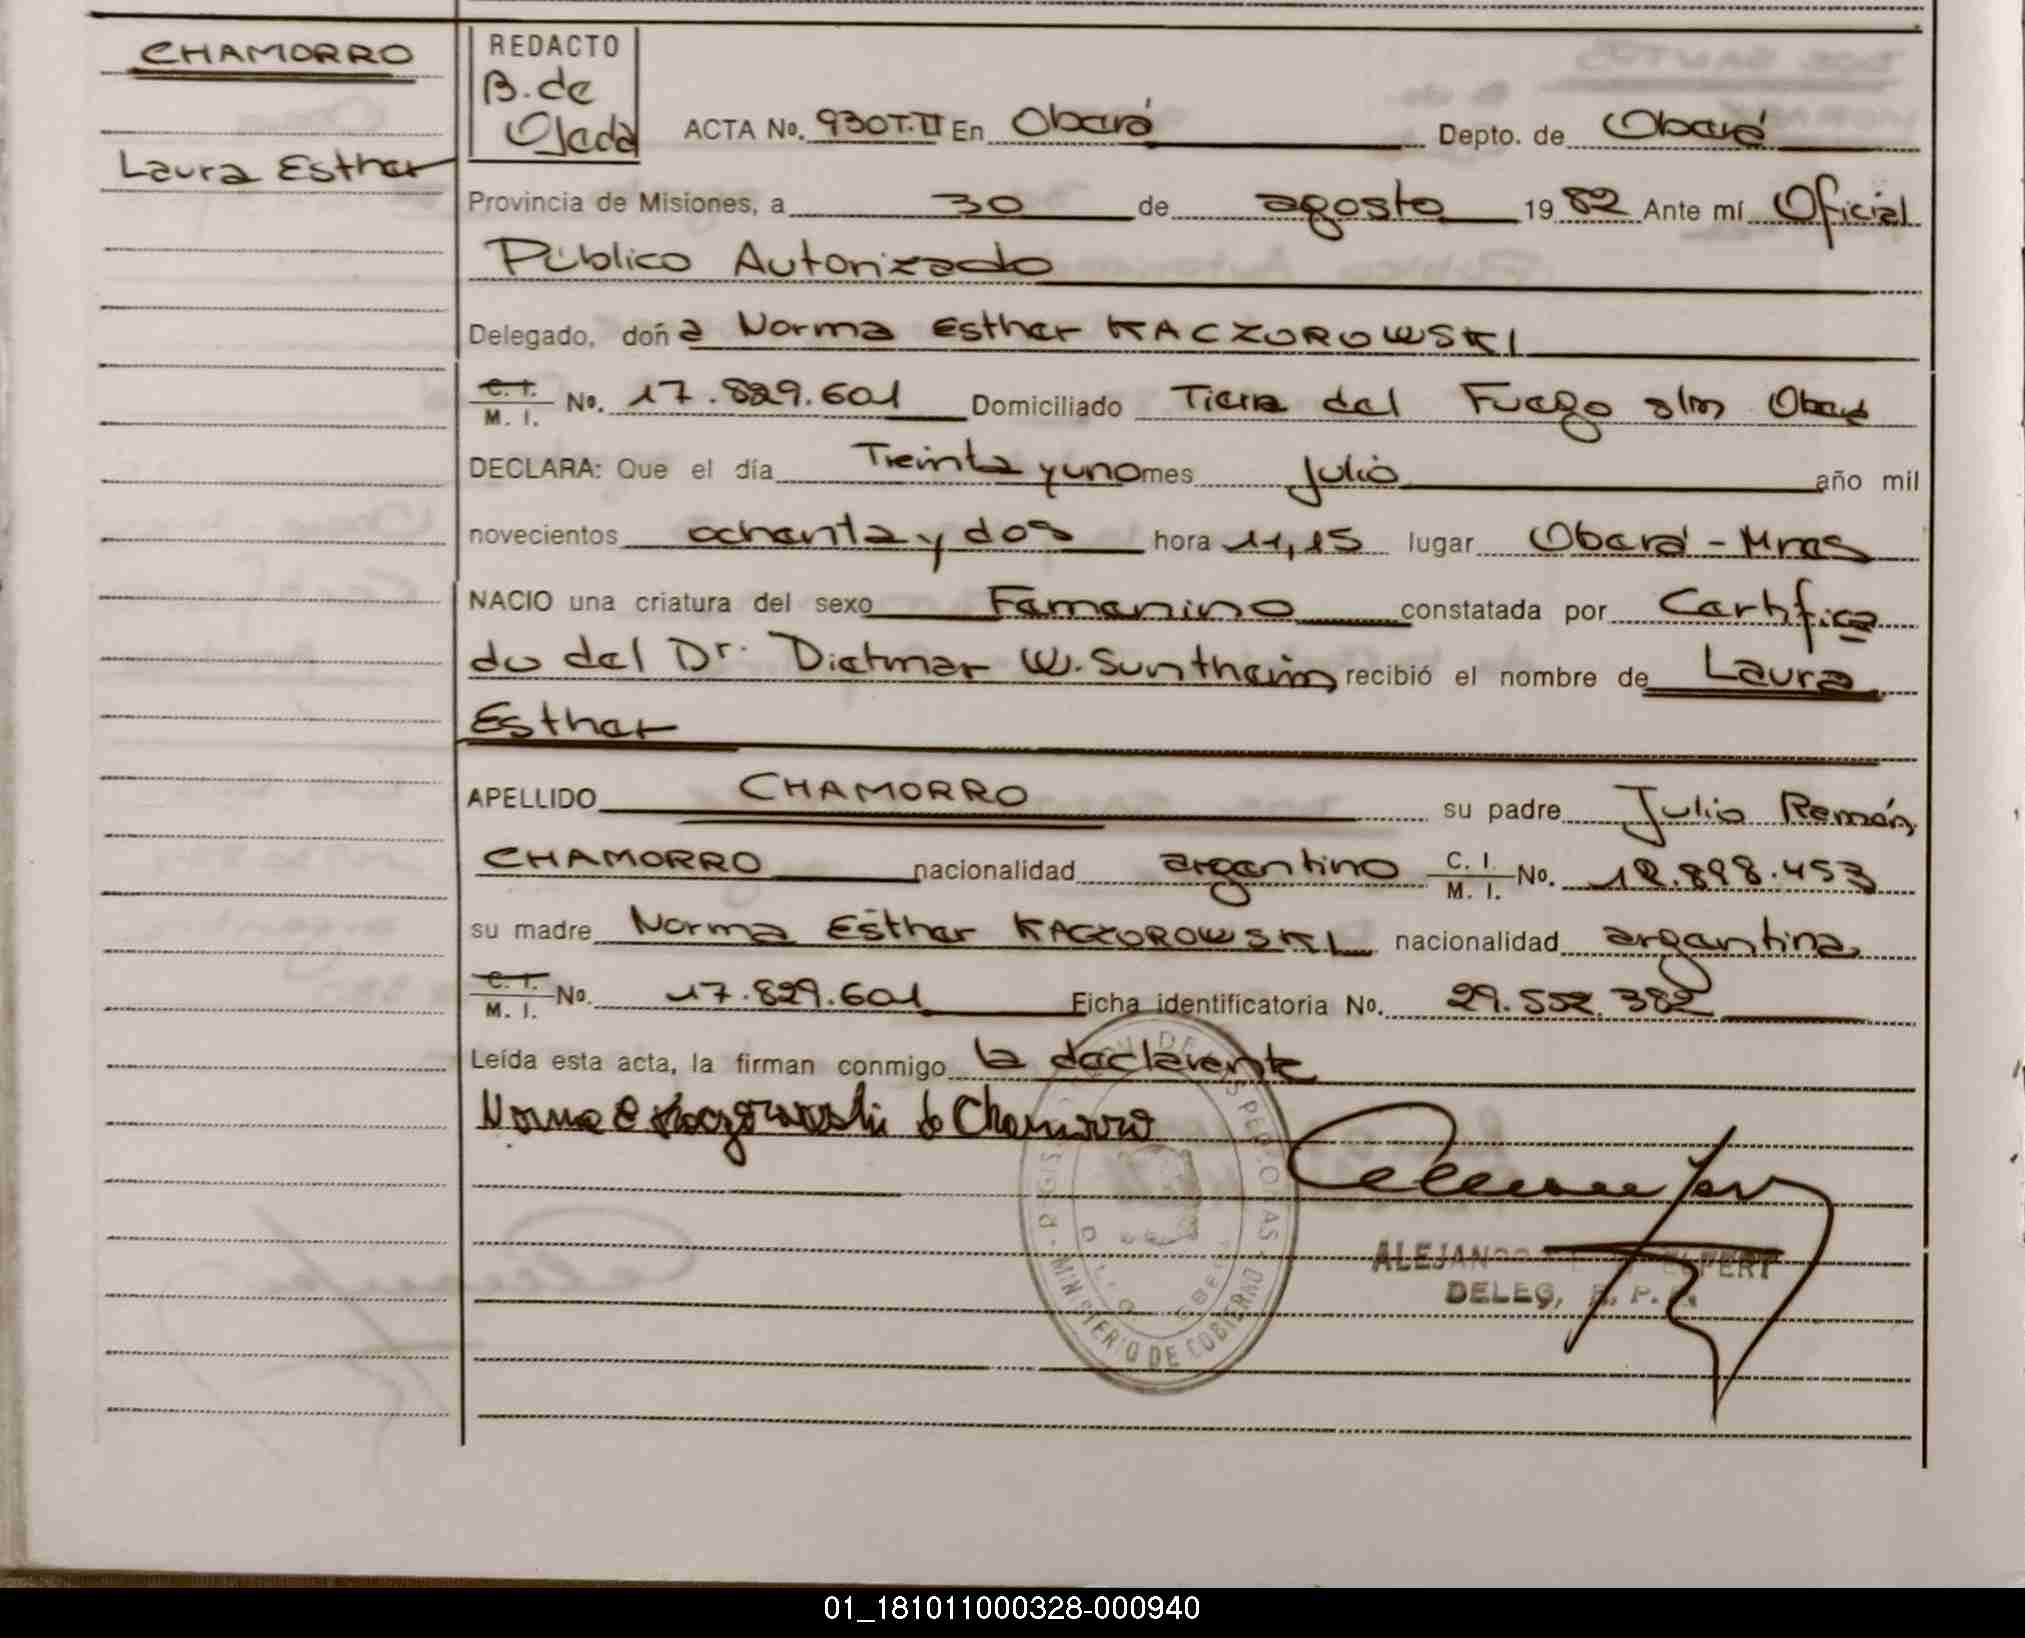 CHAMORRO
Laura Esther
REDACTO
B. de
Ojeda
ACTA No. 930T.II En Oberá Depto. de Oberá
Provincia de Misiones, a 30 de agosto 1982 Ante mí Oficial
Público Autorizado
Delegado, doña Norma Esther KACZOROWSKI
C. I. / M. I. No. 17.829.601 Domiciliado Tierra del Fuego s/n Oberá
DECLARA: Que el día Treinta y uno mes julio año mil
novecientos ochenta y dos hora 11,15 lugar Oberá - Mnes
NACIO una criatura del sexo Femenino constatada por Certifica
do del Dr. Dietmar W. Suntheim recibió el nombre de Laura
Esther
APELLIDO CHAMORRO su padre Julio Ramón
CHAMORRO nacionalidad argentino C. I. / M. I. No. 12.898.453
su madre Norma Esther KACZOROWSKI nacionalidad argentina
C. I. / M. I. No. 17.829.601 Ficha identificatoria No. 29.552.382
Leída esta acta, la firman conmigo la declarante
Norma E Kaczorowski de Chamorro
MINISTERIO DE GOBIERNO
DELEG. R. P.
01_181011000328-000940